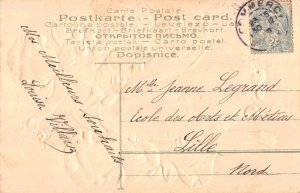 Carte Postale
Postkarte - Post card.
Carolina postala - Levelező-La
Brefkort - Briefkaart - Brevkort
ОТКРЫТОЕ ПИСЬМО.
Tarjeta postal - Cartão postal
Union postale universelle.
Dopisnice.
Mes Meilleurs Souhaits
Louisa
Mlle Jeanne Legrand
Ecole des Arts et Métiers
Lille
Nord